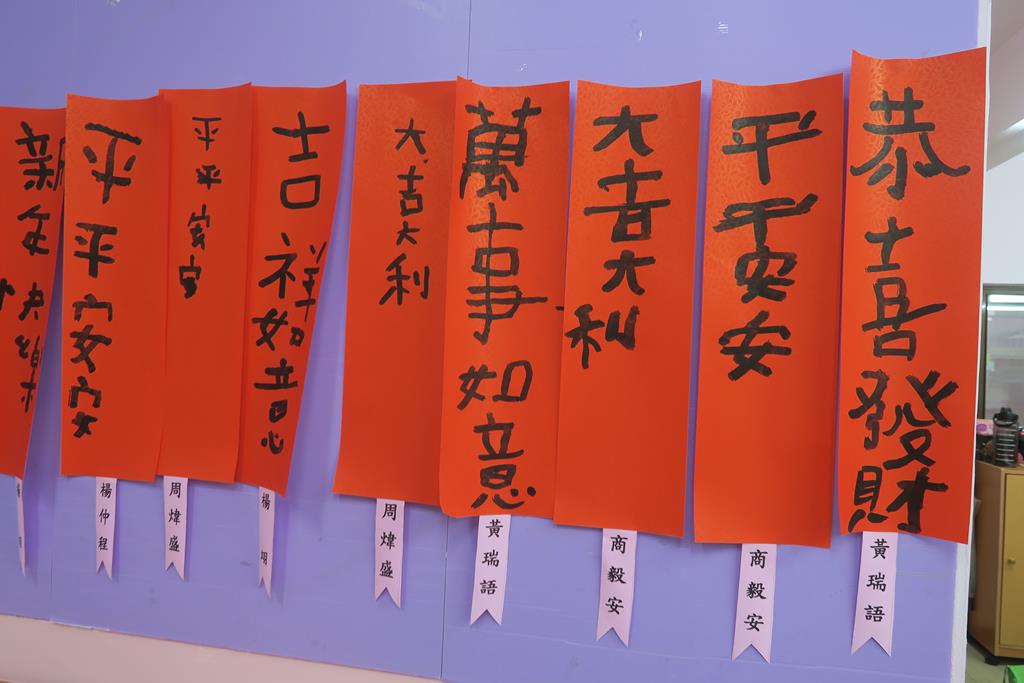 恭喜發財
黃瑞語
平平安安
商毅安
大吉大利
商毅安
萬事如意
黃瑞語
大吉大利
周煒盛
吉祥如意
楊
平平安安
周煒盛
平平安安
楊仲程
新年快樂